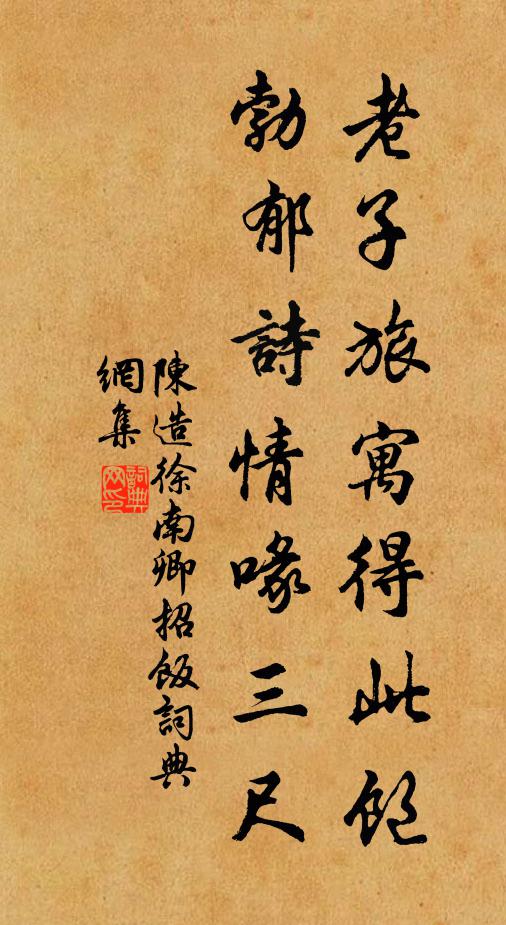 老子旅寓得此飽
勃郁詩情喙三尺
陳造徐南卿招飯詞典
網集
詞典
网印